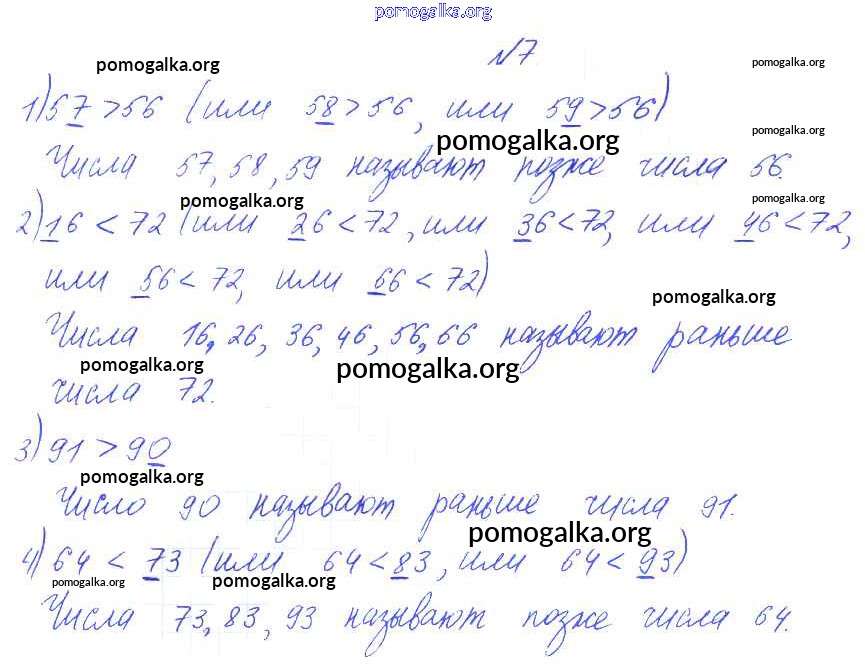 pomogalka.org
№7.
pomogalka.org pomogalka.org
1) 57 > 56 (или 58 > 56, или 59 > 56)
pomogalka.org pomogalka.org
Числа 57, 58, 59 называют позже числа 56.
pomogalka.org pomogalka.org
2) 16 < 72 (или 26 < 72, или 36 < 72, или 46 < 72,
или 56 < 72, или 66 < 72)
pomogalka.org
Числа 16, 26, 36, 46, 56, 66 называют раньше
pomogalka.org pomogalka.org
числа 72.
3) 91 > 90
pomogalka.org
Число 90 называют раньше числа 91.
pomogalka.org
4) 64 < 73 (или 64 < 83, или 64 < 93)
pomogalka.org pomogalka.org
Числа 73, 83, 93 называют позже числа 64.